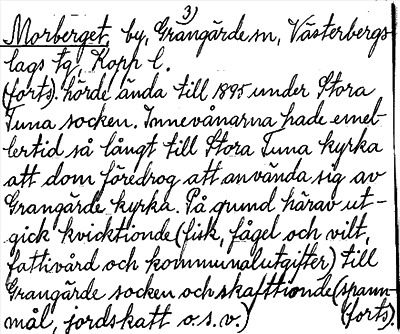 3)
Morberget, by, Grangärde sn, Västerbergs
lags tg, Kopp l.
(forts). hörde ända till 1895 under Stora
Tuna socken. Innevånarna hade emel-
lertid så långt till Stora Tuna kyrka
att dom föredrog att använda sig av
Grangärde kyrka. På grund härav ut-
gick kvicktionde (fisk, fågel och vilt,
fattivård och kommunalutgifter) till
Grangärde socken och skafttionde (spann-
mål, jordskatt o.s.v.) (forts).